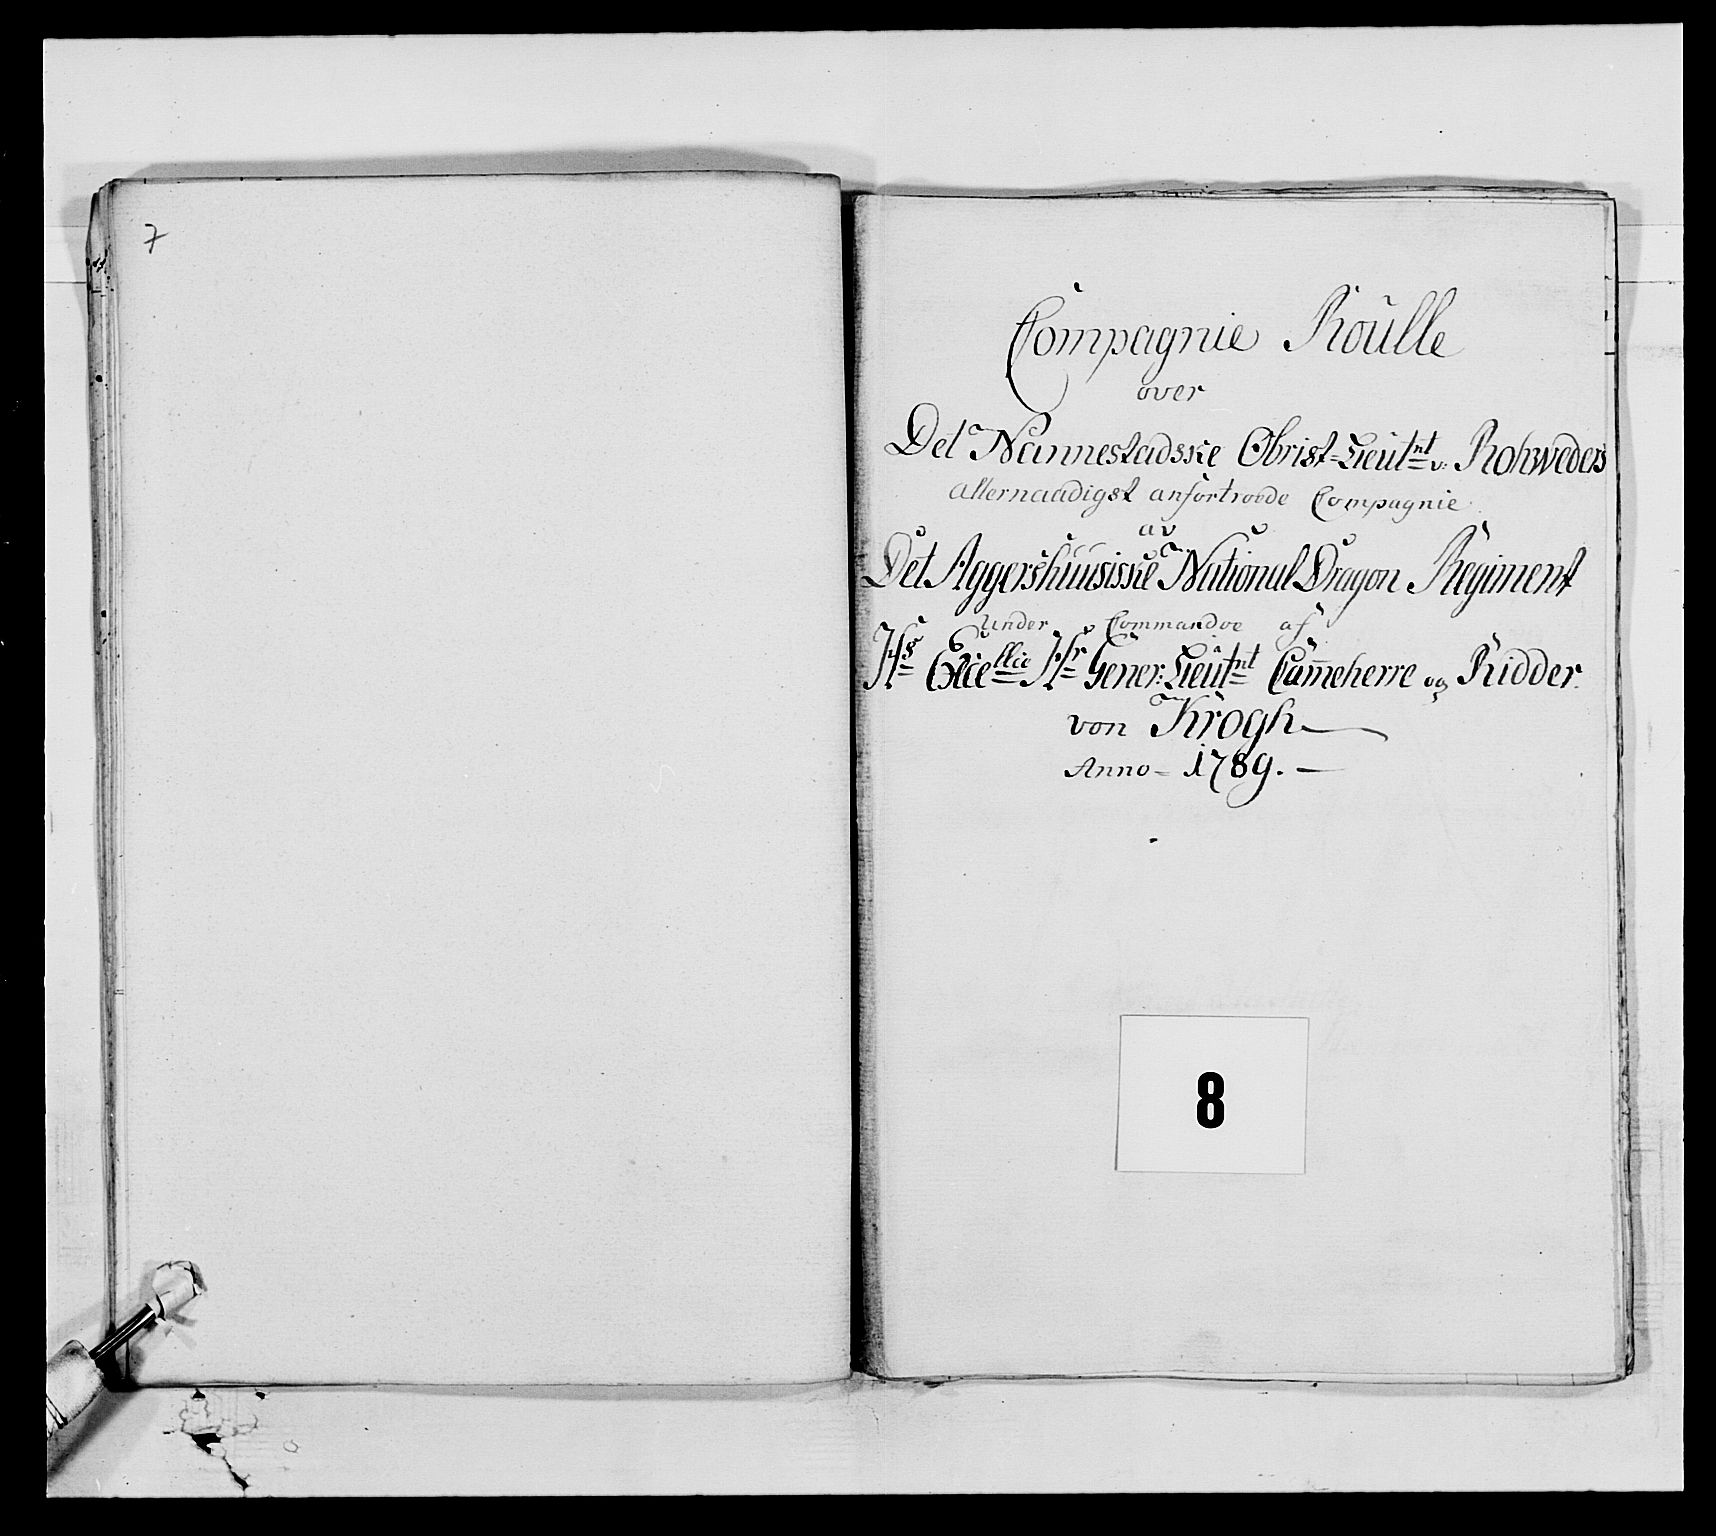 7
Compagnie Roülle
over
Det Nannestadske Obrist-Lieutnt v: Rohweders
allernaadigst anfortroede Compagnie
av
Det Aggershuusiske National Dragon Regiment
under Commandoe af
Hs Exellie Hr Gener: Lieutnt Cam̄eherre og Ridder.
von Krogh
Anno- 1789. -
8